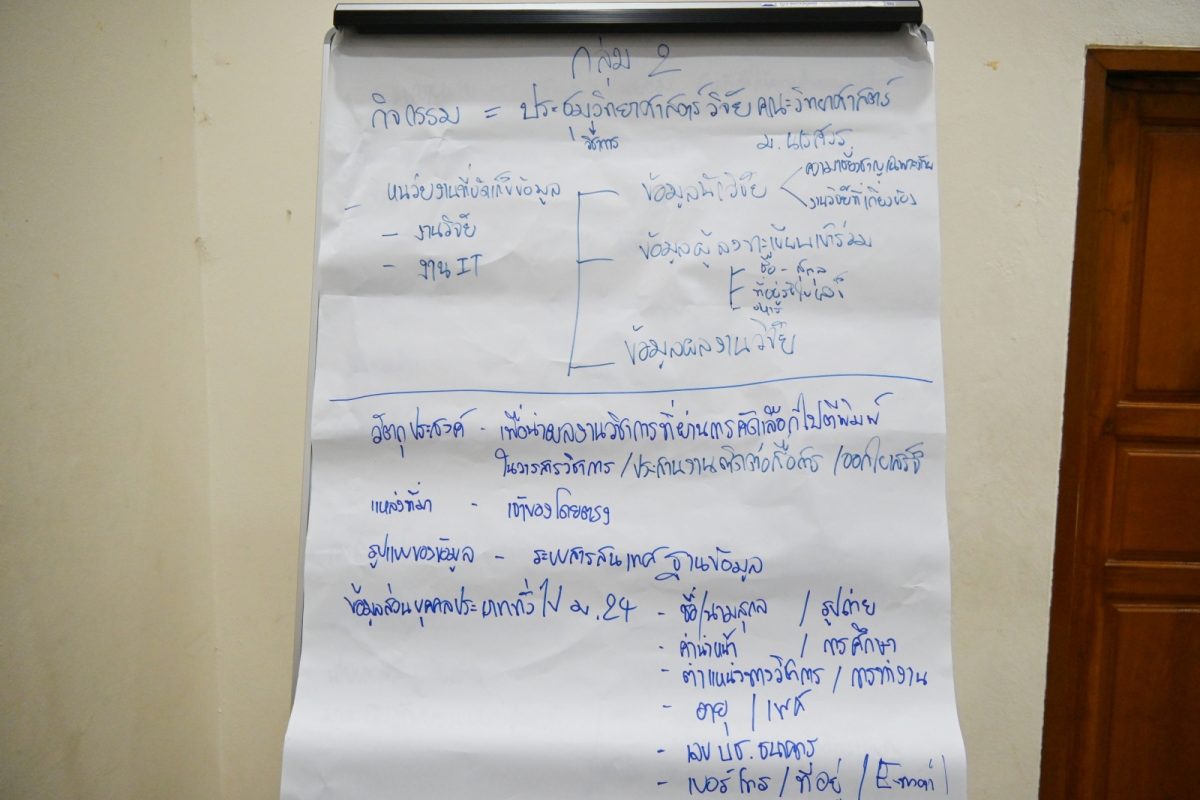 กลุ่ม 2
กิจกรรม = ประชุมวิทยาศาสตร์วิจัย คณะวิทยาศาสตร์
วิชาการ
ม. นเรศวร
- หน่วยงานที่จัดเก็บข้อมูล
- งานวิจัย
- งาน IT
ข้อมูลนักวิจัย
ความเชี่ยวชาญเฉพาะด้าน
งานวิจัยที่เกี่ยวข้อง
ข้อมูลผู้ลงทะเบียนเข้าร่วม
ชื่อ - สกุล
ที่อยู่
ข้อมูลผลงานวิจัย
วัตถุประสงค์ - เพื่อนำผลงานวิชาการที่ผ่านการคัดเลือกไปตีพิมพ์
ในวารสารวิชาการ / ประสานงานติดต่อสื่อสาร / ออกใบเสร็จ
แหล่งที่มา - เจ้าของโดยตรง
รูปแบบของข้อมูล - ระบบสารสนเทศ ฐานข้อมูล
ข้อมูลส่วนบุคคลประเภททั่วไป ม.24 - ชื่อ/นามสกุล / รูปถ่าย
- คำนำหน้า / การศึกษา
- ตำแหน่งทางวิชาการ / การทำงาน
- อายุ / เพศ
- เลข บช. ธนาคาร
- เบอร์โทร / ที่อยู่ /